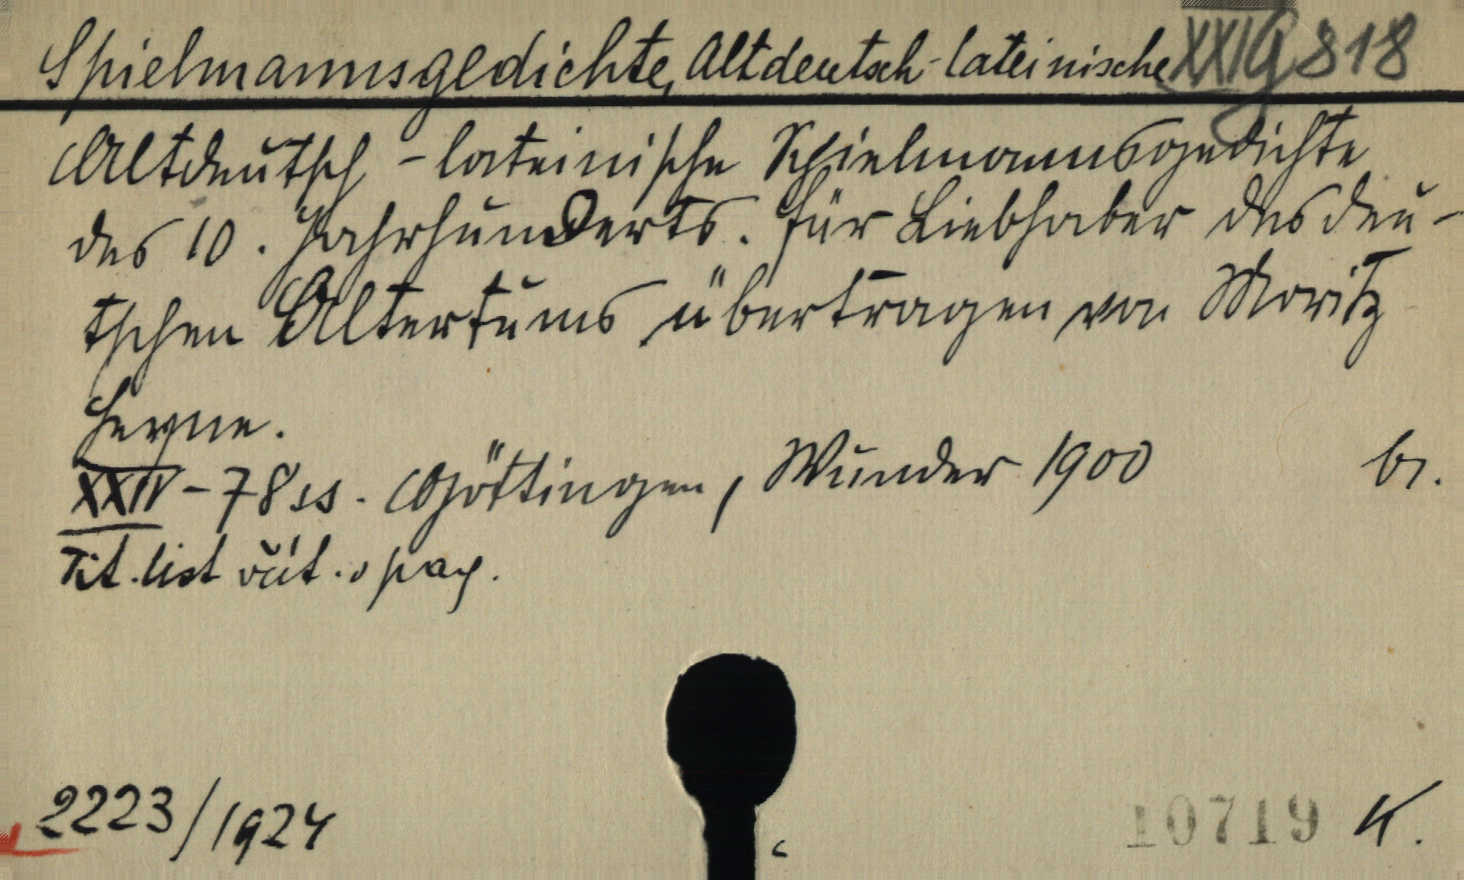 Spielmannsgedichte, Altdeutsch-lateinische XXIG 818
Altdeutsch-lateinische Spielmannsgedichte
des 10. Jahrhunderts. Für Liebhaber des deu-
tschen Altertums übertragen von Moritz
Heyne.
XXIV-78 ss. Göttingen, Wunder 1900 br.
Tit. list čít. v pag.
2223/1924 10719 K.